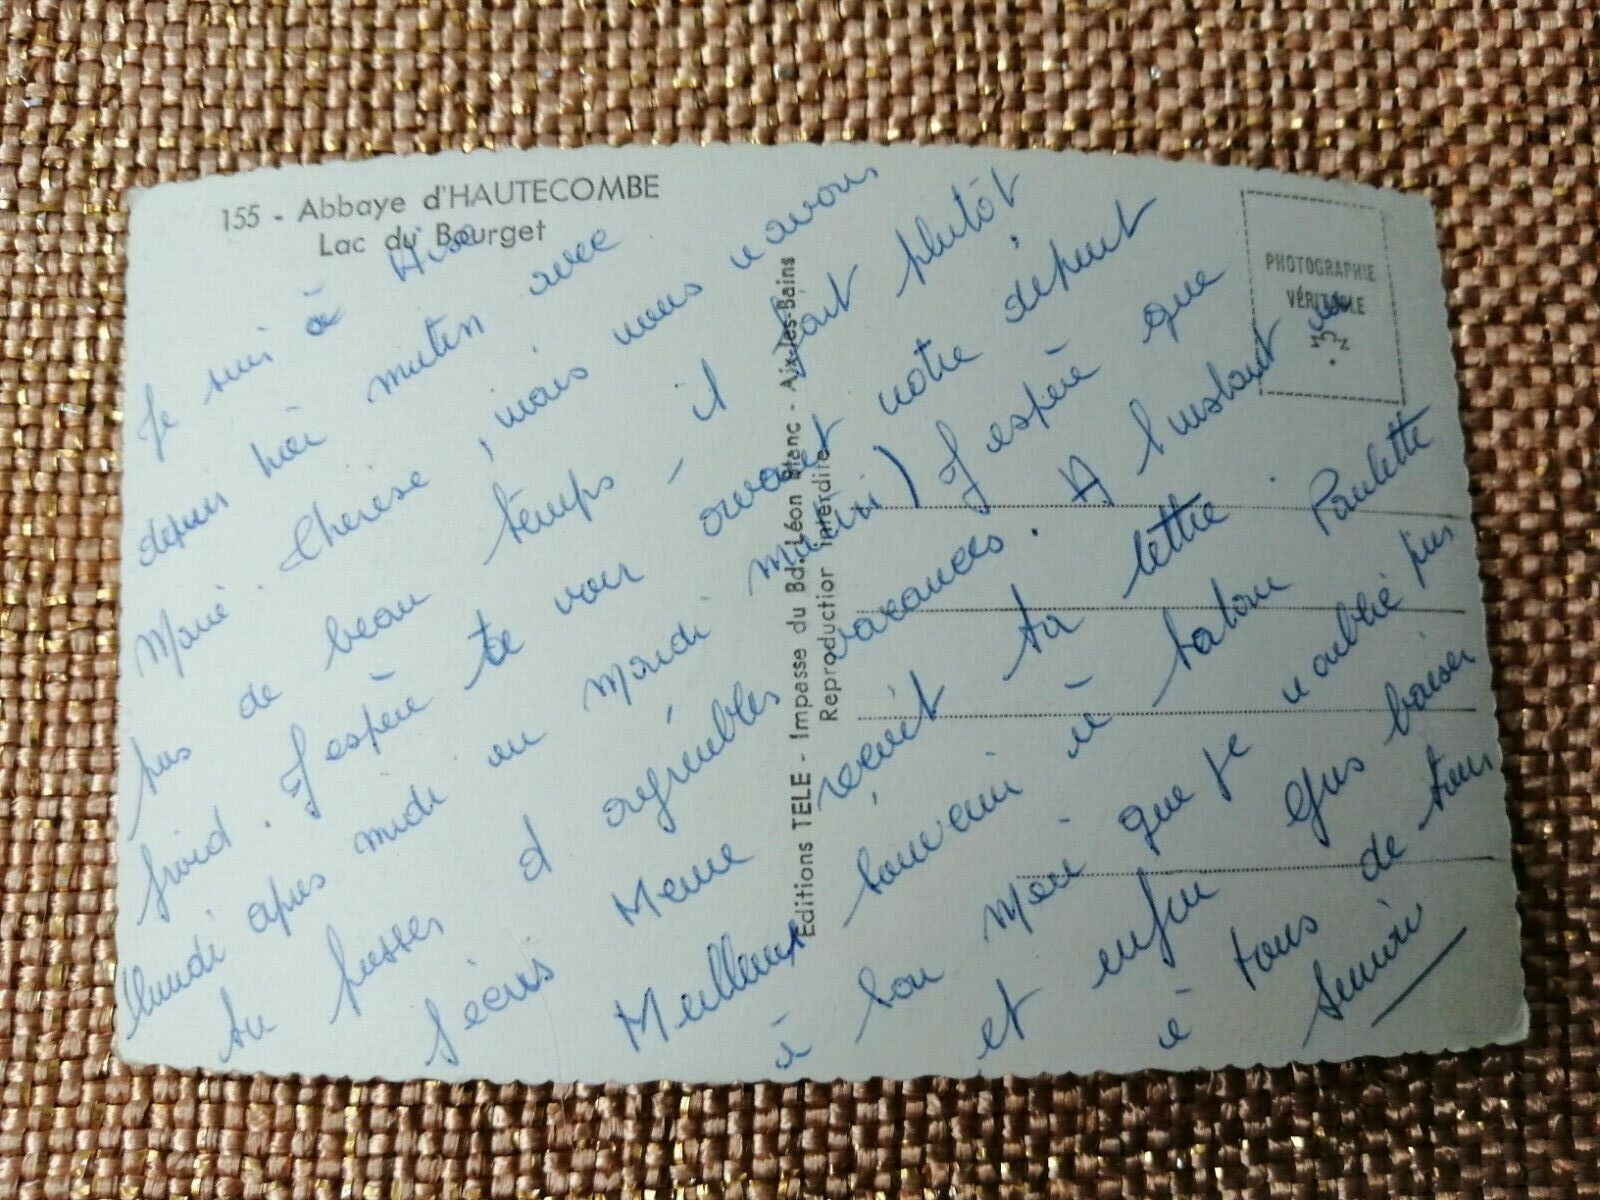 155 - Abbaye d'HAUTECOMBE
Lac du Bourget
Je suis à Aix
depuis hier matin avec
Marie Therese, mais nous n avons
pas de beau temps - il fait plutôt
froid. J espère te voir avant notre départ
lundi apres midi ou mardi matin) J espère que
tu passes d agréables vacances. A l instant
Meme reçoit ta lettre. Paulette
Meilleur souvenir à
à son Mari que je n oublie pas
et enfin Gros baiser
à tous de tous
PHOTOGRAPHIE
VÉRITABLE
Editions TELE - Impasse du Bd. Léon Blanc - Aix-les-Bains
Reproduction interdite